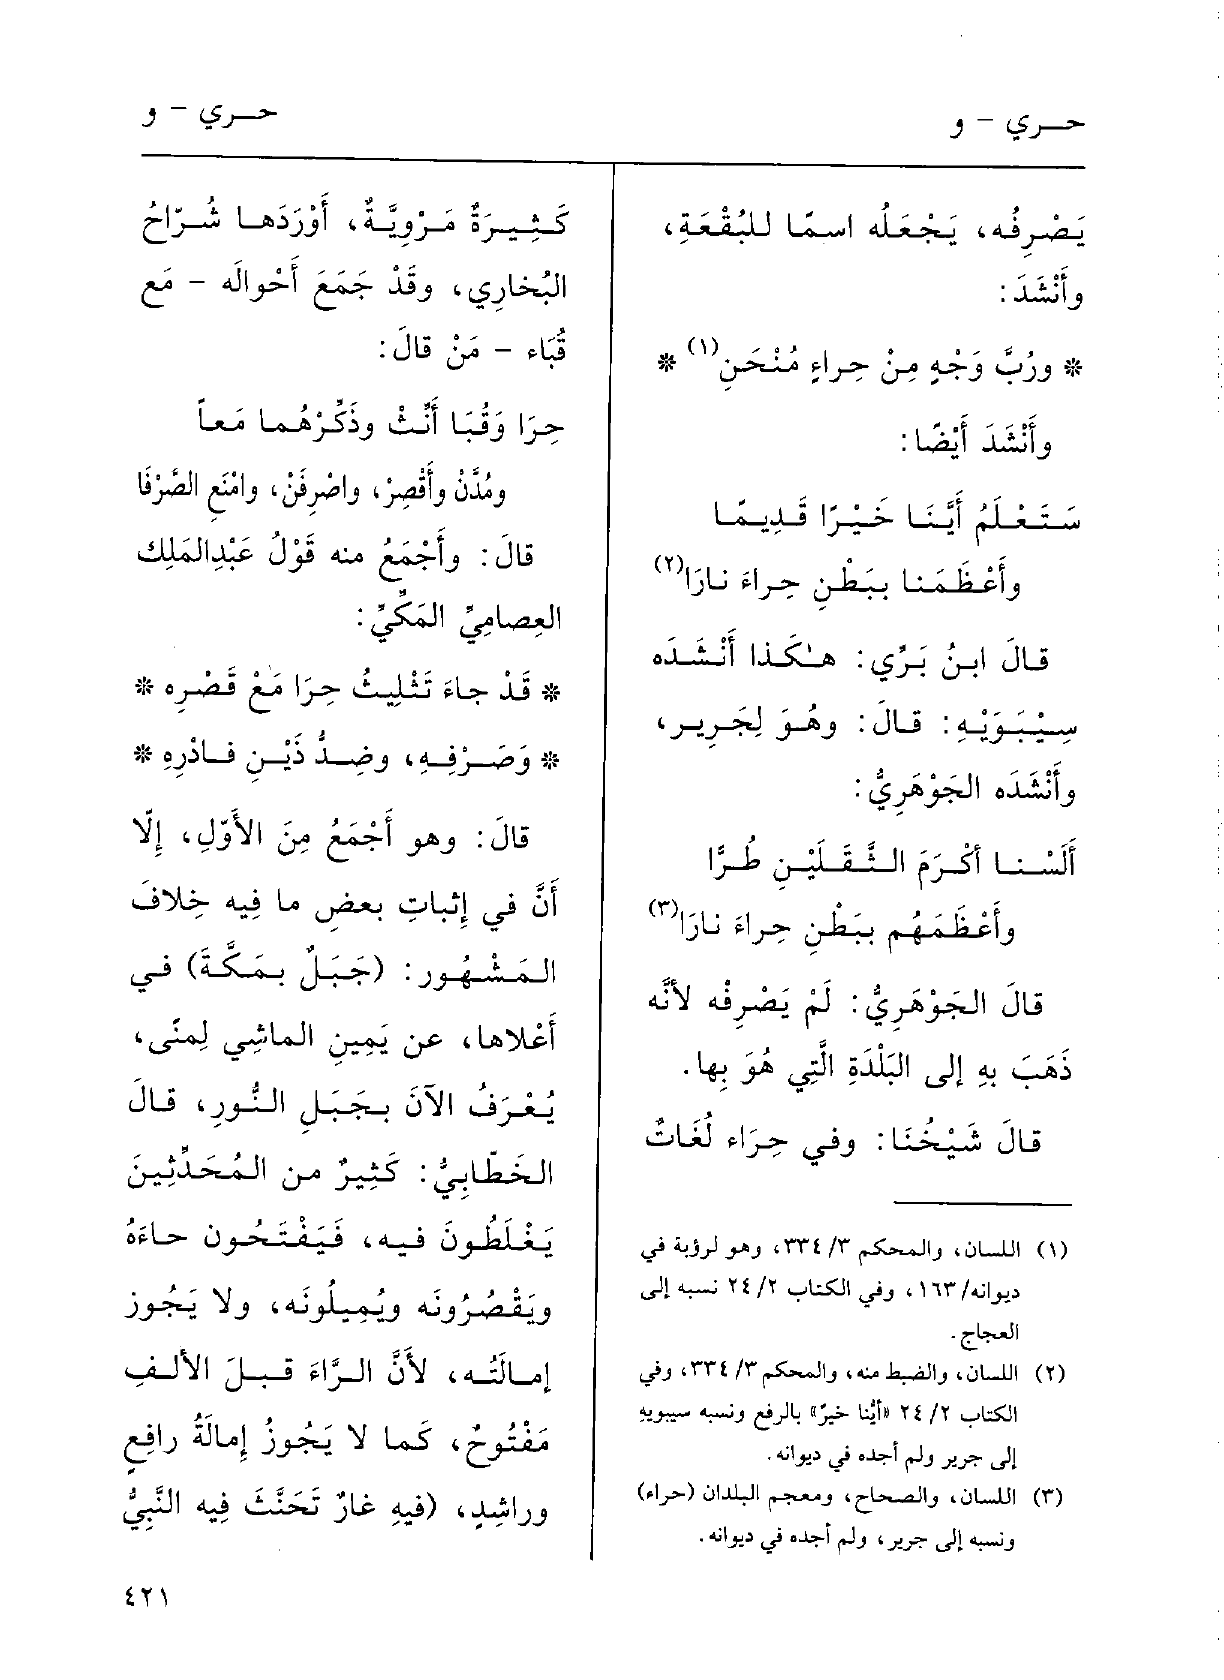 حري - و
حري - و
يَصْرِفُه، يَجْعَلُه اسمًا للبُقْعَةِ،
وأَنْشَدَ:
* ورُبَّ وَجْهٍ مِنْ حِراءٍ مُنْحَنِ(١) *
وأَنْشَدَ أَيْضًا:
سَتَعْلَمُ أَيَّنَا خَيْرًا قَدِيمًا
وأَعْظَمَنا ببَطْنِ حِراءَ نارَا(٢)
قالَ ابنُ بَرِّي: هٰكَذا أَنْشَدَه
سِيْبَوَيْهِ: قالَ: وهُوَ لِجَرِيرِ،
وأَنْشَدَه الجَوْهَرِيُّ:
أَلَسْنا أَكْرَمَ الثَّقَلَيْنِ طُرًّا
وأَعْظَمَهُم ببَطْنِ حِراءَ نارَا(٣)
قالَ الجَوْهَرِيُّ: لَمْ يَصْرِفْه لأَنَّه
ذَهَبَ بهِ إلى البَلْدَةِ الَّتِي هُوَ بِها.
قالَ شَيْخُنَا: وفي حِرَاء لُغَاتٌ
(١) اللسان، والمحكم ٣/ ٣٣٤، وهو لرؤبة في
ديوانه/ ١٦٣، وفي الكتاب ٢/ ٢٤ نسبه إلى
العجاج.
(٢) اللسان، والضبط منه، والمحكم ٣/ ٣٣٤، وفي
الكتاب ٢/ ٢٤ «أيُّنا خيرٌ» بالرفع ونسبه سيبويهِ
إلى جرير ولم أجده في ديوانه.
(٣) اللسان، والصحاح، ومعجم البلدان (حراء)
ونسبه إلى جرير، ولم أجده في ديوانه.
كَثِيرَةٌ مَرْوِيَّةٌ، أَوْرَدَها شُرّاحُ
البُخارِي، وقَدْ جَمَعَ أَحْوالَه - مَع
قُبَاء - مَنْ قالَ:
حِرَا وَقُبَا أَنِّثْ وذَكِّرْهُما مَعاً
ومُدَّنْ وأَقْصِرْ، واصْرِفَنْ، وامْنَعِ الصَّرْفَا
قالَ: وأَجْمَعُ منه قَوْلُ عَبْدِالمَلِك
العِصامِيِّ المَكِّيِّ:
* قَدْ جاءَ تَثْلِيثُ حِرَا مَعْ قَصْرِه *
* وَصَرْفِهِ، وضِدُّ ذَيْنِ فادْرِهِ *
قالَ: وهو أَجْمَعُ مِنَ الأَوَّلِ، إلّا
أَنَّ في إثباتِ بعضِ ما فِيه خِلافَ
المَشْهُورِ: (جَبَلٌ بمَكَّةَ) في
أَعْلاها، عن يَمِينِ الماشِي لِمِنًى،
يُعْرَفُ الآنَ بجَبَلِ النُّورِ، قالَ
الخَطّابِيُّ: كَثِيرٌ من المُحَدِّثِينَ
يَغْلَطُونَ فيه، فَيَفْتَحُون حاءَهُ
ويَقْصُرُونَه ويُمِيلُونَه، ولا يَجُوز
إمالَتُه، لأَنَّ الرَّاءَ قبلَ الألفِ
مَفْتُوحٌ، كَما لا يَجُوزُ إمالَةُ رافِعٍ
وراشِدٍ، (فيهِ غارٌ تَحَنَّثَ فِيه النَّبِيُّ
٤٢١